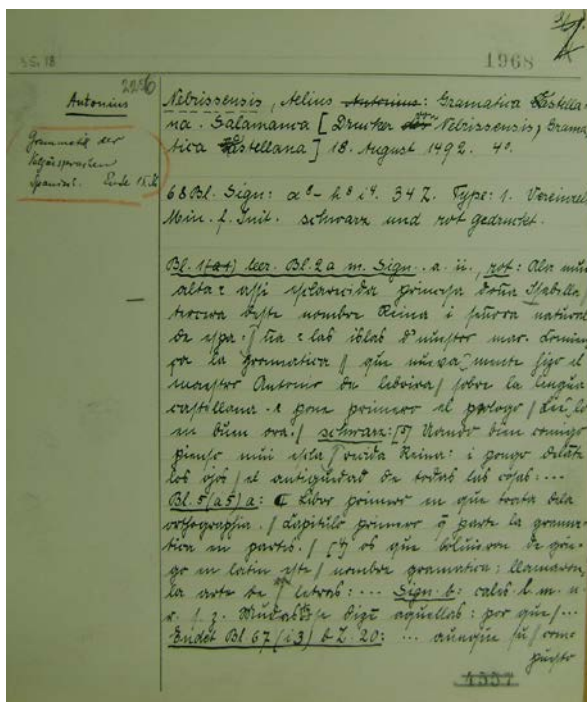 1968
2256
Antonius
Nebrissensis, Aelius Antonius: Gramatica Castella-
na. Salamanca [Drucker von Nebrissensis, Grama-
tica Castellana] 18. August 1492. 4o.
Grammatik der
Spanisch. Ende 15. Jh
68 Bl. Sign: a8 - h8 i4. 34 Z. Type: 1. Vereinzel
Min. f. Init. schwarz und rot gedruckt.
Bl. 1(a1) leer. Bl. 2a m. Sign. a. ii, rot: Ala mui
alta z assi esclarecida princesa doña Isabella
tercera deste nombre Reina i señora natural
de espa- / ña z las islas d'nuestro mar. Comien-
ça la gramatica / que nueva mente hizo el
maestro Antonio de lebrixa / sobre la lengua
castellana. z pone primero el prologo / Lee lo
en buen ora. / schwarz: Uando bien comigo
pienso mui escla / recida Reina: i pongo delāte
los ojos / el antiguedad de todas las cosas: ...
Bl. 5(a5)a: Libro primero en que trata dela
orthographia. / Capitulo primero q parte la gramma-
tica en partes. / os que bolvieron de grie-
go en latin este / nombre gramatica: llamaron
la arte de letras: ... Sign. b: cales l. m. n.
r. s. z. Mudas se dizē aquellas: por que / ...
Endet Bl 67 (i3) b Z. 20: ... aunque su / como
puesto
1337